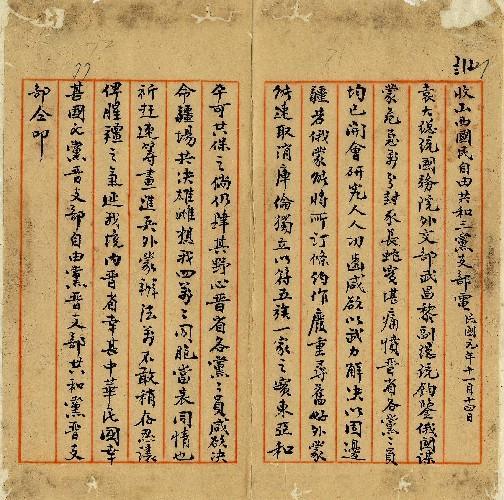 收山西國民自由共和三黨支部電 民國元年十一月十四日
袁大總統國務院外交部武昌黎副總統鈞鑒俄國謀
蒙危急萬分封豕長蛇實堪痛憤晉省各黨々員
均已開會研究人人切齒咸欲以武力解決以固邊
疆若俄蒙能將所訂條約作廢重尋舊好外蒙
能速取消庫倫獨立以符五族一家之實東亞和
平可共保之倘仍肆其野心晉省各黨々員咸欲決
命疆場共決雄雌想我四萬々同胞當表同情也
祈 速籌畫進兵外蒙辦法萬不敢稍存忍讓
俾腥羶之氣延我境內晉省幸甚中華民國幸
甚國民黨晉支部自由黨晉支部共和黨晉支
部仝叩